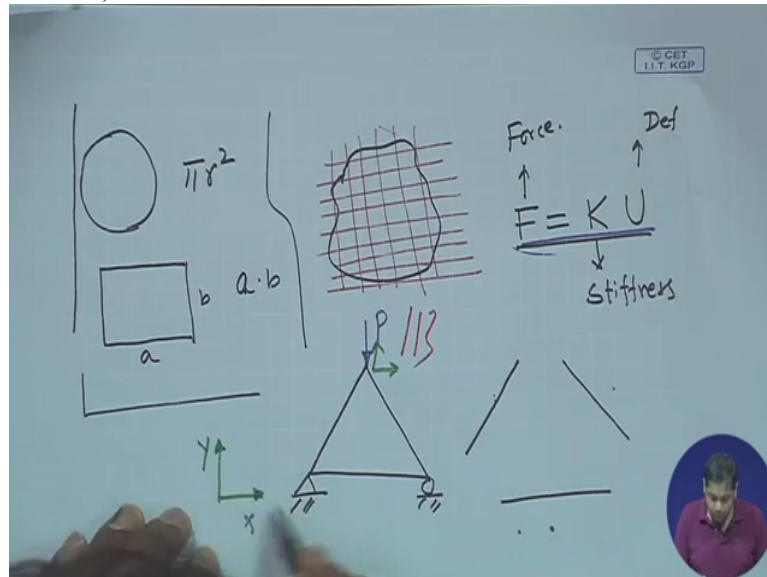 © CET
I.I.T. KGP
πr²
a
b
a·b
Force.
Def
F = K U
Stiffness
P
Y
X